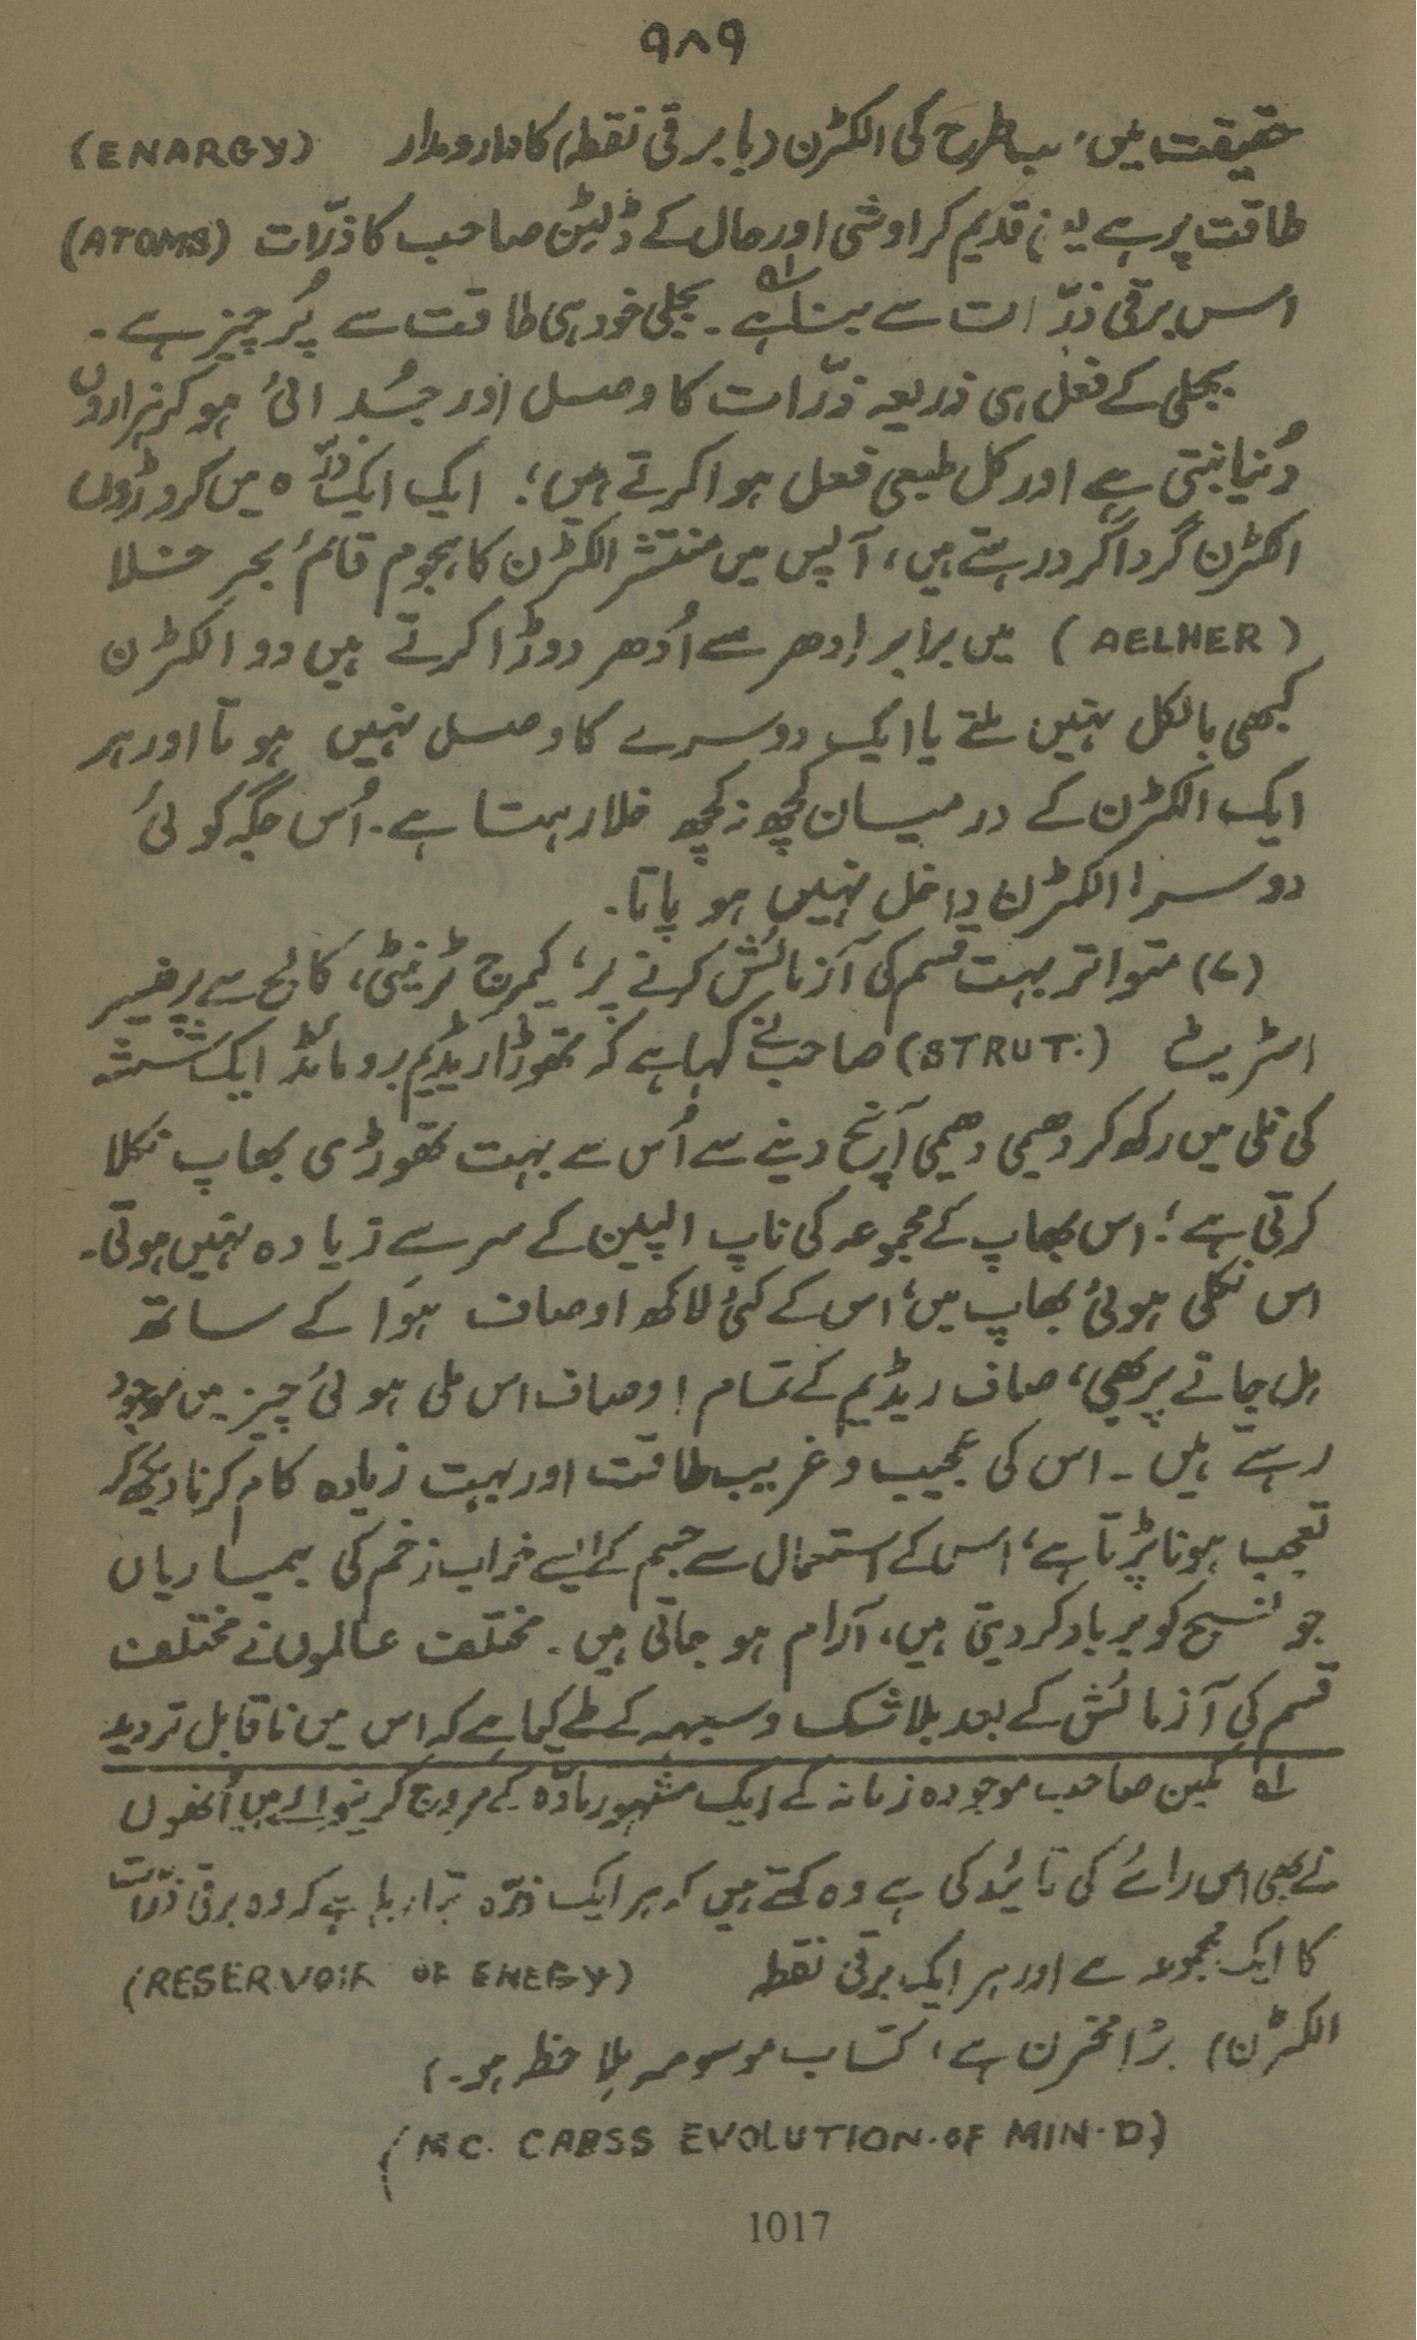 ۹۸۹
حقیقت میں سب طرح کی الکٹرن (یا برقی نقطہ) کا دارومدار (ENARGY)
طاقت پر ہے یہ قدیم کراوشی اور حال کے ڈلیٹن صاحب کا ذرّات (ATOMS)
اس برقی ذرّات سے بنا ہے۔ بجلی خود ہی طاقت سے پُر چیز ہے۔
بجلی کے فعل ہی ذریعہ ذرّات کا وصل اور جُدائی ہو کر ہزاروں
دُنیا بنتی ہے اور کل طبعی فعل ہوا کرتے ہیں؛ ایک ایک ذرّہ میں کروڑوں
الکٹرن گرداگرد رہتے ہیں، آپس میں منتشر الکٹرن کا ہجوم قائم بحرِ خلا
(AELHER) میں برابر اِدھر سے اُدھر دوڑا کرتے ہیں دو الکٹرن
کبھی بالکل نہیں ملتے یا ایک دوسرے کا وصل نہیں ہوتا اور ہر
ایک الکٹرن کے درمیان کچھ نہ کچھ خلا رہتا ہے۔ اُس جگہ کوئی
دوسرا الکٹرن داخل نہیں ہو پاتا۔
(۷) متواتر بہت قسم کی آزمائش کرنے پر، کیمرج ٹرنیٹی، کالج سے پرفیسر
اسٹریٹ (STRUT.) صاحب نے کہا ہے کہ تھوڑا ریڈیم برومائڈ ایک شیشہ
کی نلی میں رکھ کر دھیمی دھیمی آنچ دینے سے اُس سے بہت تھوڑی بھاپ نکلا
کرتی ہے؛ اس بھاپ کے مجموعہ کی ناپ الپین کے سر سے زیادہ نہیں ہوتی۔
اس نکلی ہوئی بھاپ میں، اس کے کئی لاکھ اوصاف ہَوا کے ساتھ
مل جانے پر بھی، صاف ریڈیم کے تمام اوصاف اس ملی ہوئی چیز میں موجود
رہتے ہیں۔ اس کی عجیب و غریب طاقت اور بہت زیادہ کام کرنا دیکھ کر
تعجب ہونا پڑتا ہے، اس کے استعمال سے جسم کے ایسے خراب زخم کی بیماریاں
جو نسیج کو برباد کر دیتی ہیں، آرام ہو جاتی ہیں۔ مختلف عالموں نے مختلف
قسم کی آزمائش کے بعد بلا شک و سبہہ کے طے کیا ہے کہ اس میں ناقابل تردید
لہ کمین صاحب موجودہ زمانہ کے ایک مشہور مادّہ کے مروج کرنیوالے ہیں اُنھوں
نے بھی اس رائے کی تائید کی ہے وہ کہتے ہیں کہ ہر ایک ذرّہ بتا رہا ہے کہ وہ برقی ذرّات
کا ایک مجموعہ ہے اور ہر ایک برقی نقطہ (RESERVOIR OF ENERGY)
الکٹرن) بڑا مخزن ہے، کتاب موسومہ ملاحظہ ہو۔)
(MC. CABSS EVOLUTION.OF MIN.D)
1017